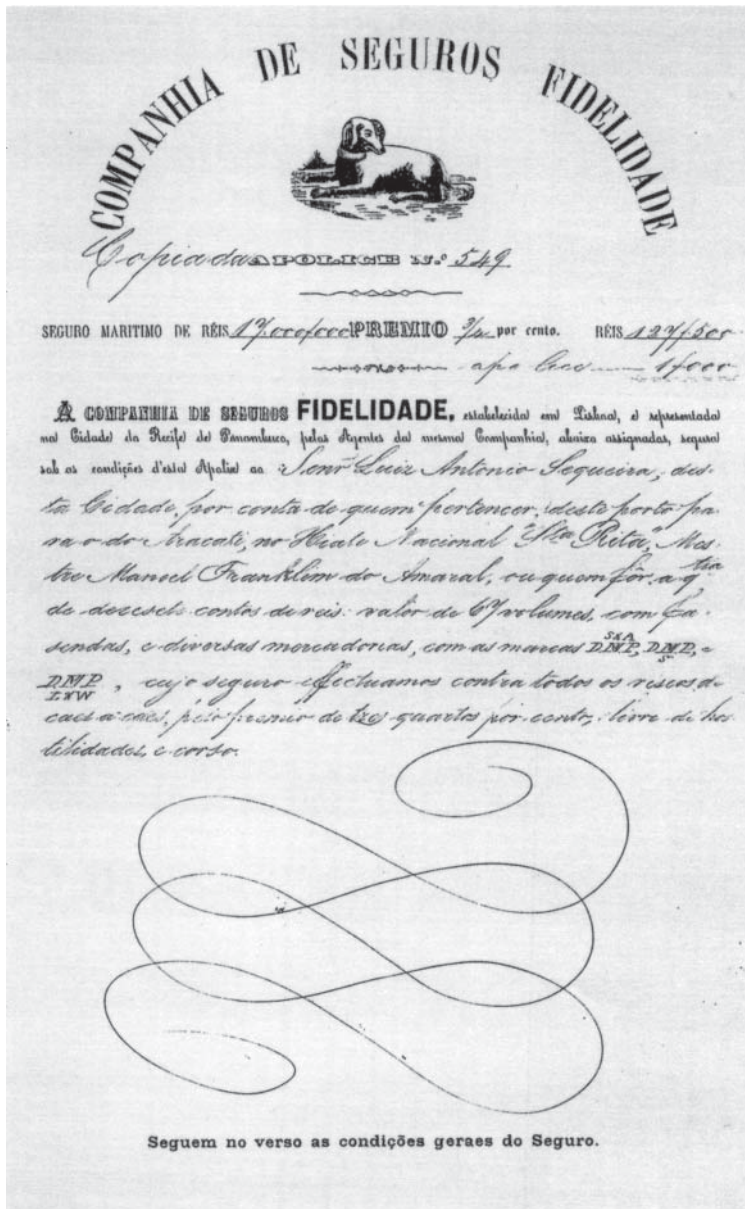 COMPANHIA DE SEGUROS FIDELIDADE
Copia da APOLICE N.º 549
SEGURO MARITIMO DE RÉIS 17,000$000 PREMIO 3/4 por cento. RÉIS 127$500
apolice 1$000
A COMPANHIA DE SEGUROS FIDELIDADE, estabelecida em Lisboa, e representada
na Cidade da Recife de Panambuco, pelas Agentes da mesma Companhia, abaixo assignadas, segura
sob as condições d'esta Apolice ao Senr. Luiz Antonio Sequeira, des-
ta Cidade, por conta de quem pertencer, deste porto pa-
ra o do Aracati, no Hiate Nacional "Sta Rita," Mes-
tre Manoel Franklim do Amaral, ou quem fôr, a qtia
de desesete contos de reis: valor de 67 volumes, com fa-
sendas, e diversas mercadorias, com as marcas DMP, DMP, e
DMP, cujo seguro effectuamos contra todos os riscos de
caes a caes, pelo premio de tres quartos por cento, livre de hos-
tilidades, e corso.
Seguem no verso as condições geraes do Seguro.